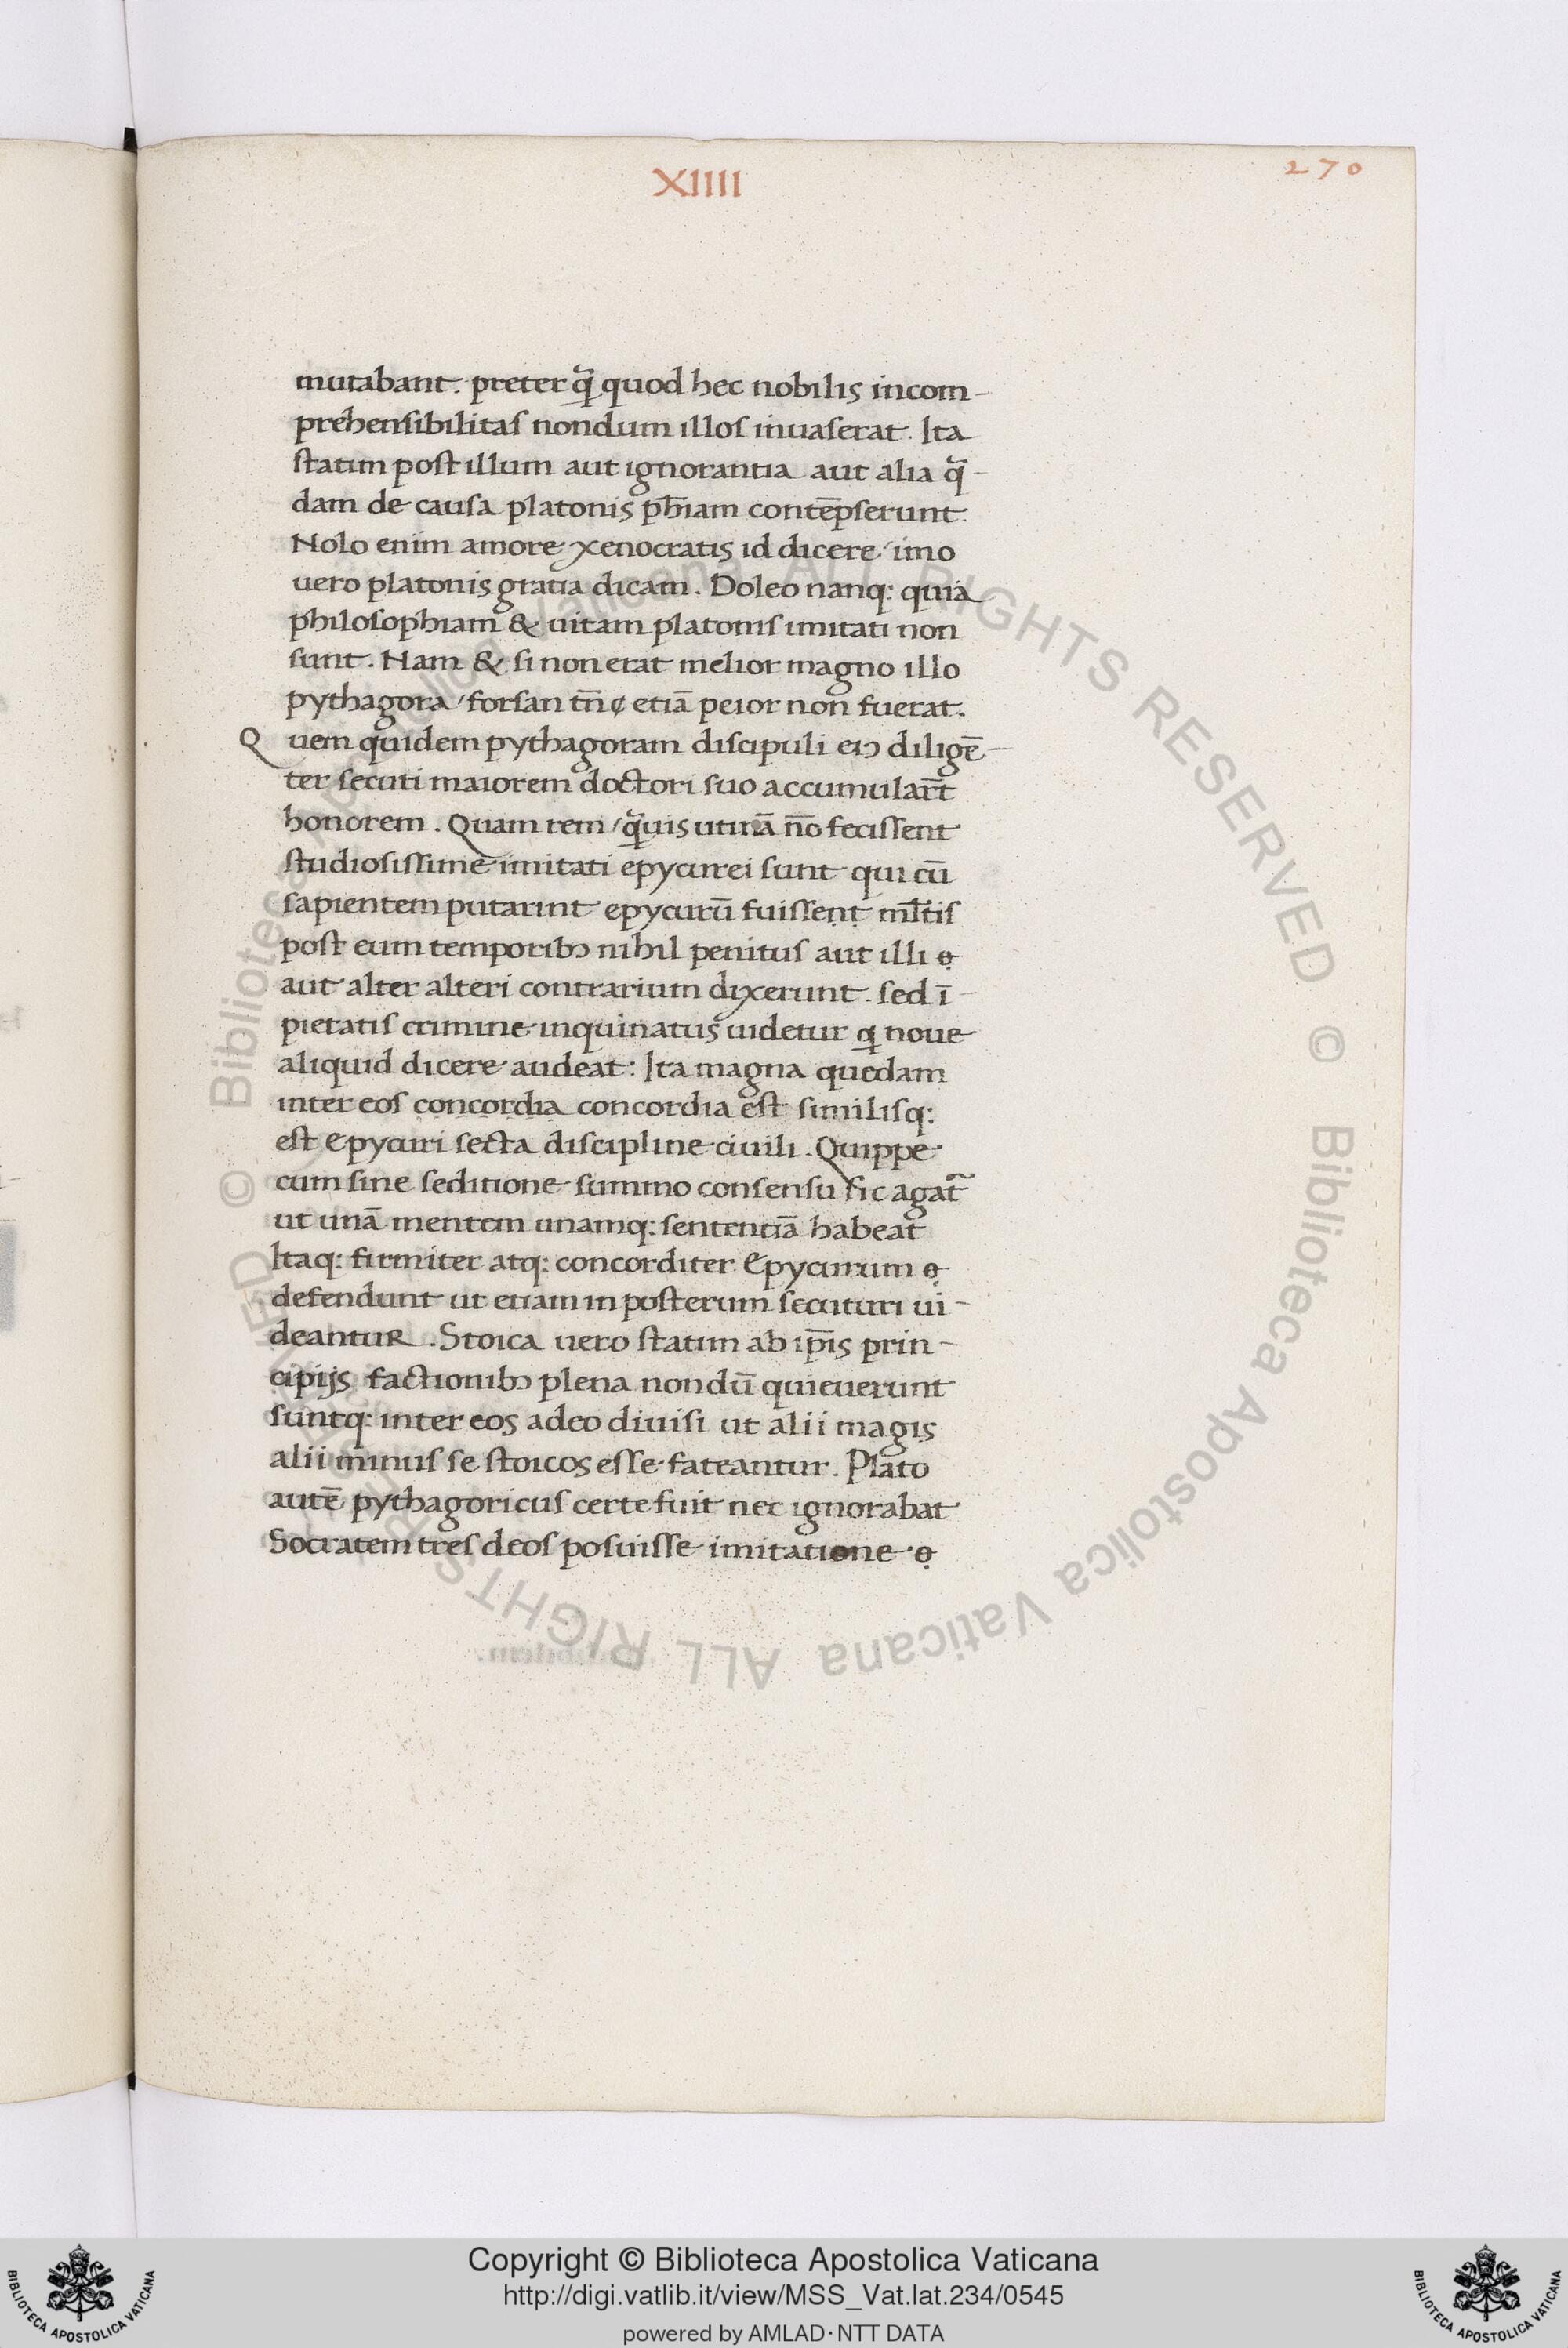 XIIII
270
mutabant. preter q̃ quod hec nobilis incom-
prehensibilitas nondum illos inuaserat. Ita
statim post illum aut ignorantia aut alia q̃-
dam de causa platonis ph̄iam contēpserunt:
Nolo enim amore xenocratis id dicere / imo
uero platonis gratia dicam. Doleo nanq: quia
philosophiam & uitam platonis imitati non
sunt. Nam & si non erat melior magno illo
pythagora / forsan tñ etiā peior non fuerat.
Quem quidem pythagoram discipuli eiꝰ diligē-
ter secuti maiorem doctori suo accumular̄t
honorem. Quam rem / q̃uis utinā nō fecissent
studiosissime imitati epycurei sunt qui cū
sapientem putarint epycurū fuissent ml̄tis
post eum temporibꝰ nihil penitus aut illi
aut alter alteri contrarium dixerunt. sed ī-
pietatis crimine inquinatus uidetur qi noue
aliquid dicere audeat: Ita magna quedam
inter eos concordia concordia est similisq:
est Epycuri secta discipline ciuili. Quippe
cum sine seditione summo consensu sic agat̃
ut unā mentem unamq: sententiā habeat
Itaq: firmiter atq: concorditer Epycurum
defendunt ut etiam in posterum secuturi ui-
deantur. Stoica uero statim ab ip̄is prin-
cipijs factionibꝰ plena nondū quieuerunt
suntq: inter eos adeo diuisi ut alii magis
alii minus se stoicos esse fateantur. Plato
autē pythagoricus certe fuit nec ignorabat
Socratem tres deos posuisse imitatione
© Biblioteca Apostolica Vaticana ALL RIGHTS RESERVED © Biblioteca Apostolica Vaticana ALL RIGHTS RESERVED
Copyright © Biblioteca Apostolica Vaticana
http://digi.vatlib.it/view/MSS_Vat.lat.234/0545
powered by AMLAD·NTT DATA
BIBLIOTECA APOSTOLICA VATICANA
BIBLIOTECA APOSTOLICA VATICANA